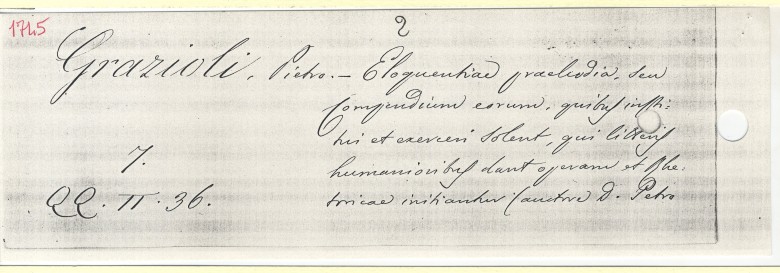 1745
2
Grazioli, Pietro. — Eloquentiae praeludia, seu
Compendium eorum, quibus insti-
tui et exerceri solent, qui litteris
humanioribus dant operam et Rhe-
toricae initiantur (auctore D. Petro
7.
QQ. II. 36.